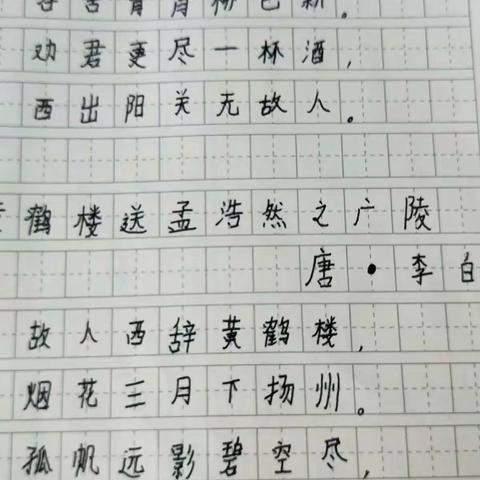 客舍青青柳色新。
劝君更尽一杯酒,
西出阳关无故人。
鹤楼送孟浩然之广陵
唐·李白
故人西辞黄鹤楼,
烟花三月下扬州。
孤帆远影碧空尽,